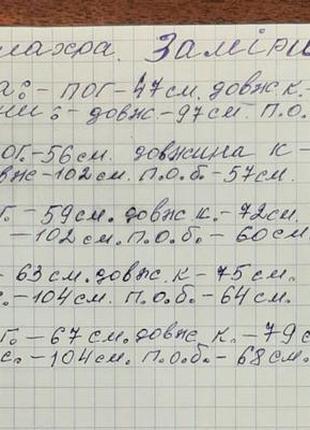 махра. Заміри
ПОГ-47см. довж к.-
довж-97см. П.О.
ОГ.-56см. довжина к-
вж-102см. п.о.б.-57см.
Г.-59см. довж к.-72см.
-102см. п.о.б.-60см.
-63см. довж. к-75см.
с.-104см. п.о.б.-64см.
Г.-67см. довж к.-79с
с.-104см. п.о.б.-68см.